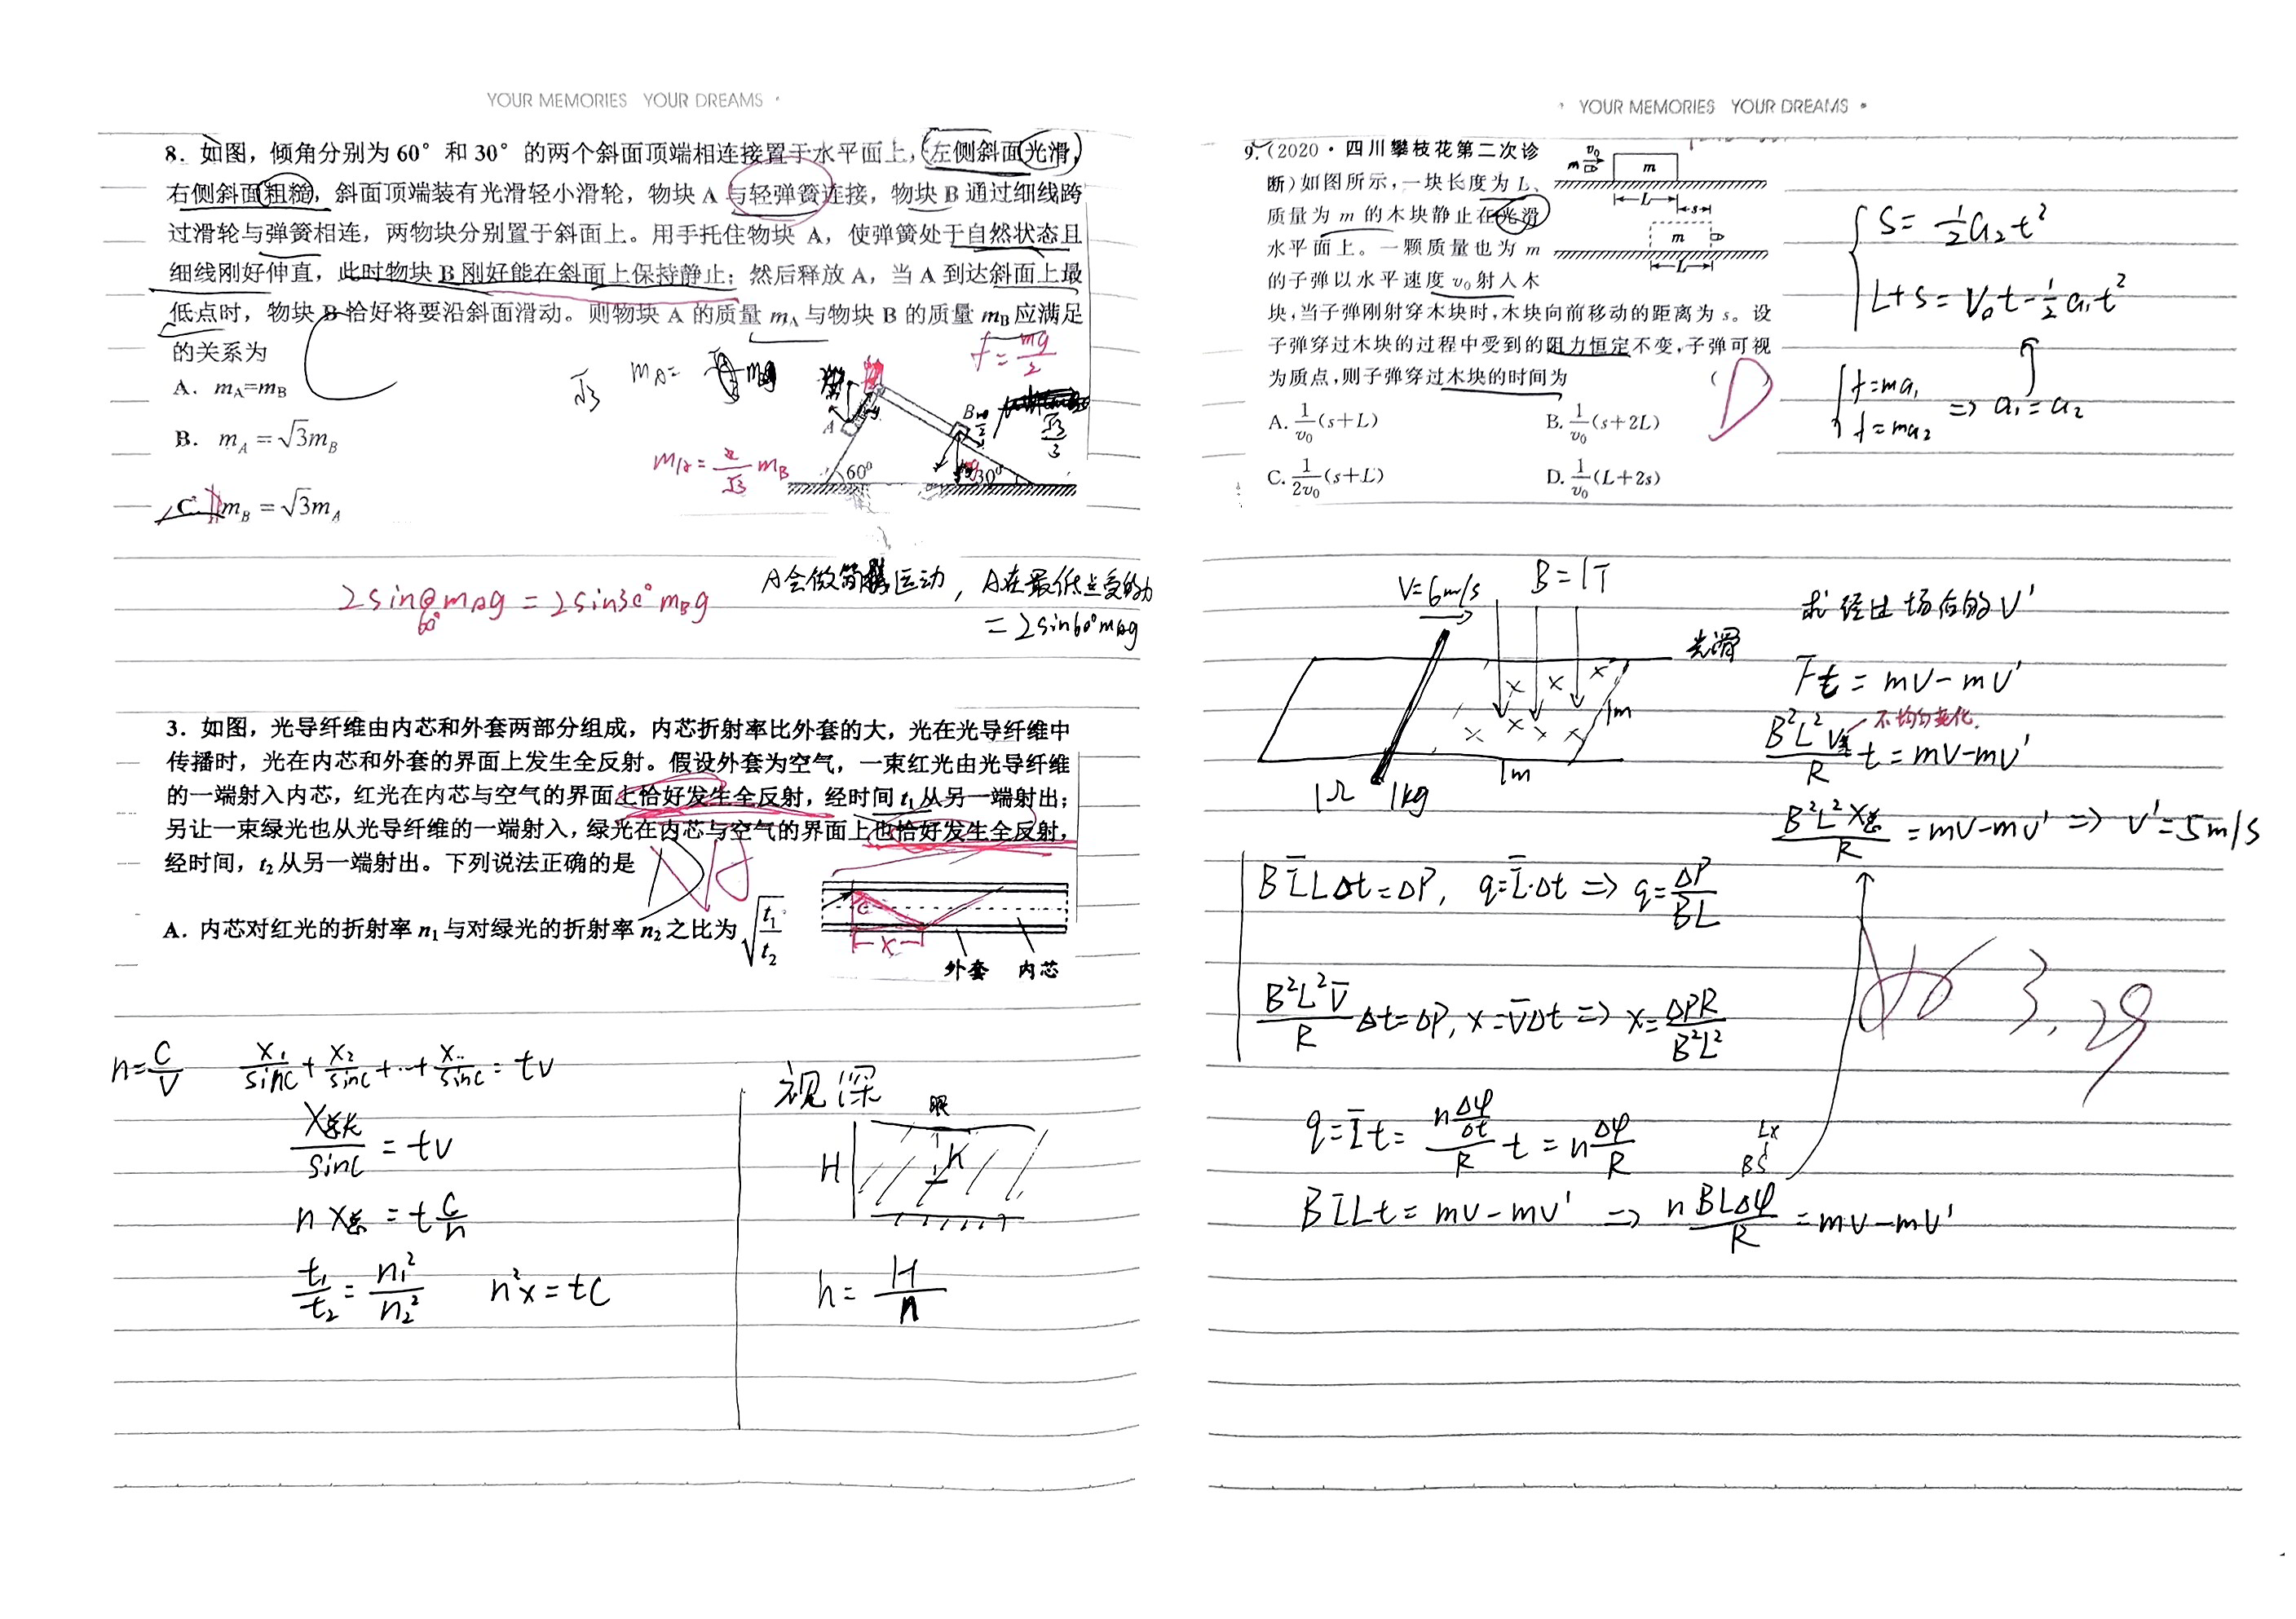 YOUR MEMORIES YOUR DREAMS
8. 如图，倾角分别为 60° 和 30° 的两个斜面顶端相连接置于水平面上，左侧斜面光滑，
右侧斜面粗糙，斜面顶端装有光滑轻小滑轮，物块 A 与轻弹簧连接，物块 B 通过细线跨
过滑轮与弹簧相连，两物块分别置于斜面上。用手托住物块 A，使弹簧处于自然状态且
细线刚好伸直，此时物块 B 刚好能在斜面上保持静止；然后释放 A，当 A 到达斜面上最
低点时，物块 B 恰好将要沿斜面滑动。则物块 A 的质量 mA 与物块 B 的质量 mB 应满足
的关系为
f = mg/2
A. mA=mB
√3
mA=
B. mA = √3mB
mA = 2/√3 mB
A
B
60°
30°
√3/3
C. mB = √3mA
2sin60° mAg = 2sin30° mBg
A会做简谐运动，A在最低点受的力
= 2sin60°mAg
3. 如图，光导纤维由内芯和外套两部分组成，内芯折射率比外套的大，光在光导纤维中
传播时，光在内芯和外套的界面上发生全反射。假设外套为空气，一束红光由光导纤维
的一端射入内芯，红光在内芯与空气的界面上恰好发生全反射，经时间 t₁ 从另一端射出；
另让一束绿光也从光导纤维的一端射入，绿光在内芯与空气的界面上也恰好发生全反射，
经时间，t₂ 从另一端射出。下列说法正确的是
A. 内芯对红光的折射率 n₁ 与对绿光的折射率 n₂ 之比为 √(t₁/t₂)
C
x
外套 内芯
n=C/V x₁/sinC + x₂/sinC + … + x../sinC = tv
x总长/sinC = tv
n x总 = t C/n
t₁/t₂ = n₁²/n₂² n²x = tC
视深
眼
H
h
h = H/n
YOUR MEMORIES YOUR DREAMS
9. (2020·四川攀枝花第二次诊
断)如图所示，一块长度为 L、
质量为 m 的木块静止在光滑
水平面上。一颗质量也为 m
的子弹以水平速度 v₀ 射入木
块，当子弹刚射穿木块时，木块向前移动的距离为 s。设
子弹穿过木块的过程中受到的阻力恒定不变，子弹可视
为质点，则子弹穿过木块的时间为 ( D )
m v₀ m
L s
m
L
A. 1/v₀ (s+L) B. 1/v₀ (s+2L)
C. 1/2v₀ (s+L) D. 1/v₀ (L+2s)
S = ½a₂t²
L+S = V₀t - ½a₁t²
f=ma₁
f=ma₂
⇒ a₁=a₂
V=6m/s B=1T
光滑
1m
1m
1Ω 1kg
求经过场后的V'
F̄t = mv - mv'
B²L²V/R t = mv - mv'
不均匀变化.
B²L²x总/R = mv - mv' ⇒ v'=5m/s
BĪLΔt=ΔP, q=Ī·Δt ⇒ q=ΔP/BL
B²L²V̄/R Δt=ΔP, x=V̄Δt ⇒ x=ΔPR/B²L²
3.29
q=Īt= (nΔφ/Δt)/R t = nΔφ/R
Lx
BS
BĪLt = mv - mv' ⇒ nBLΔφ/R = mv - mv'